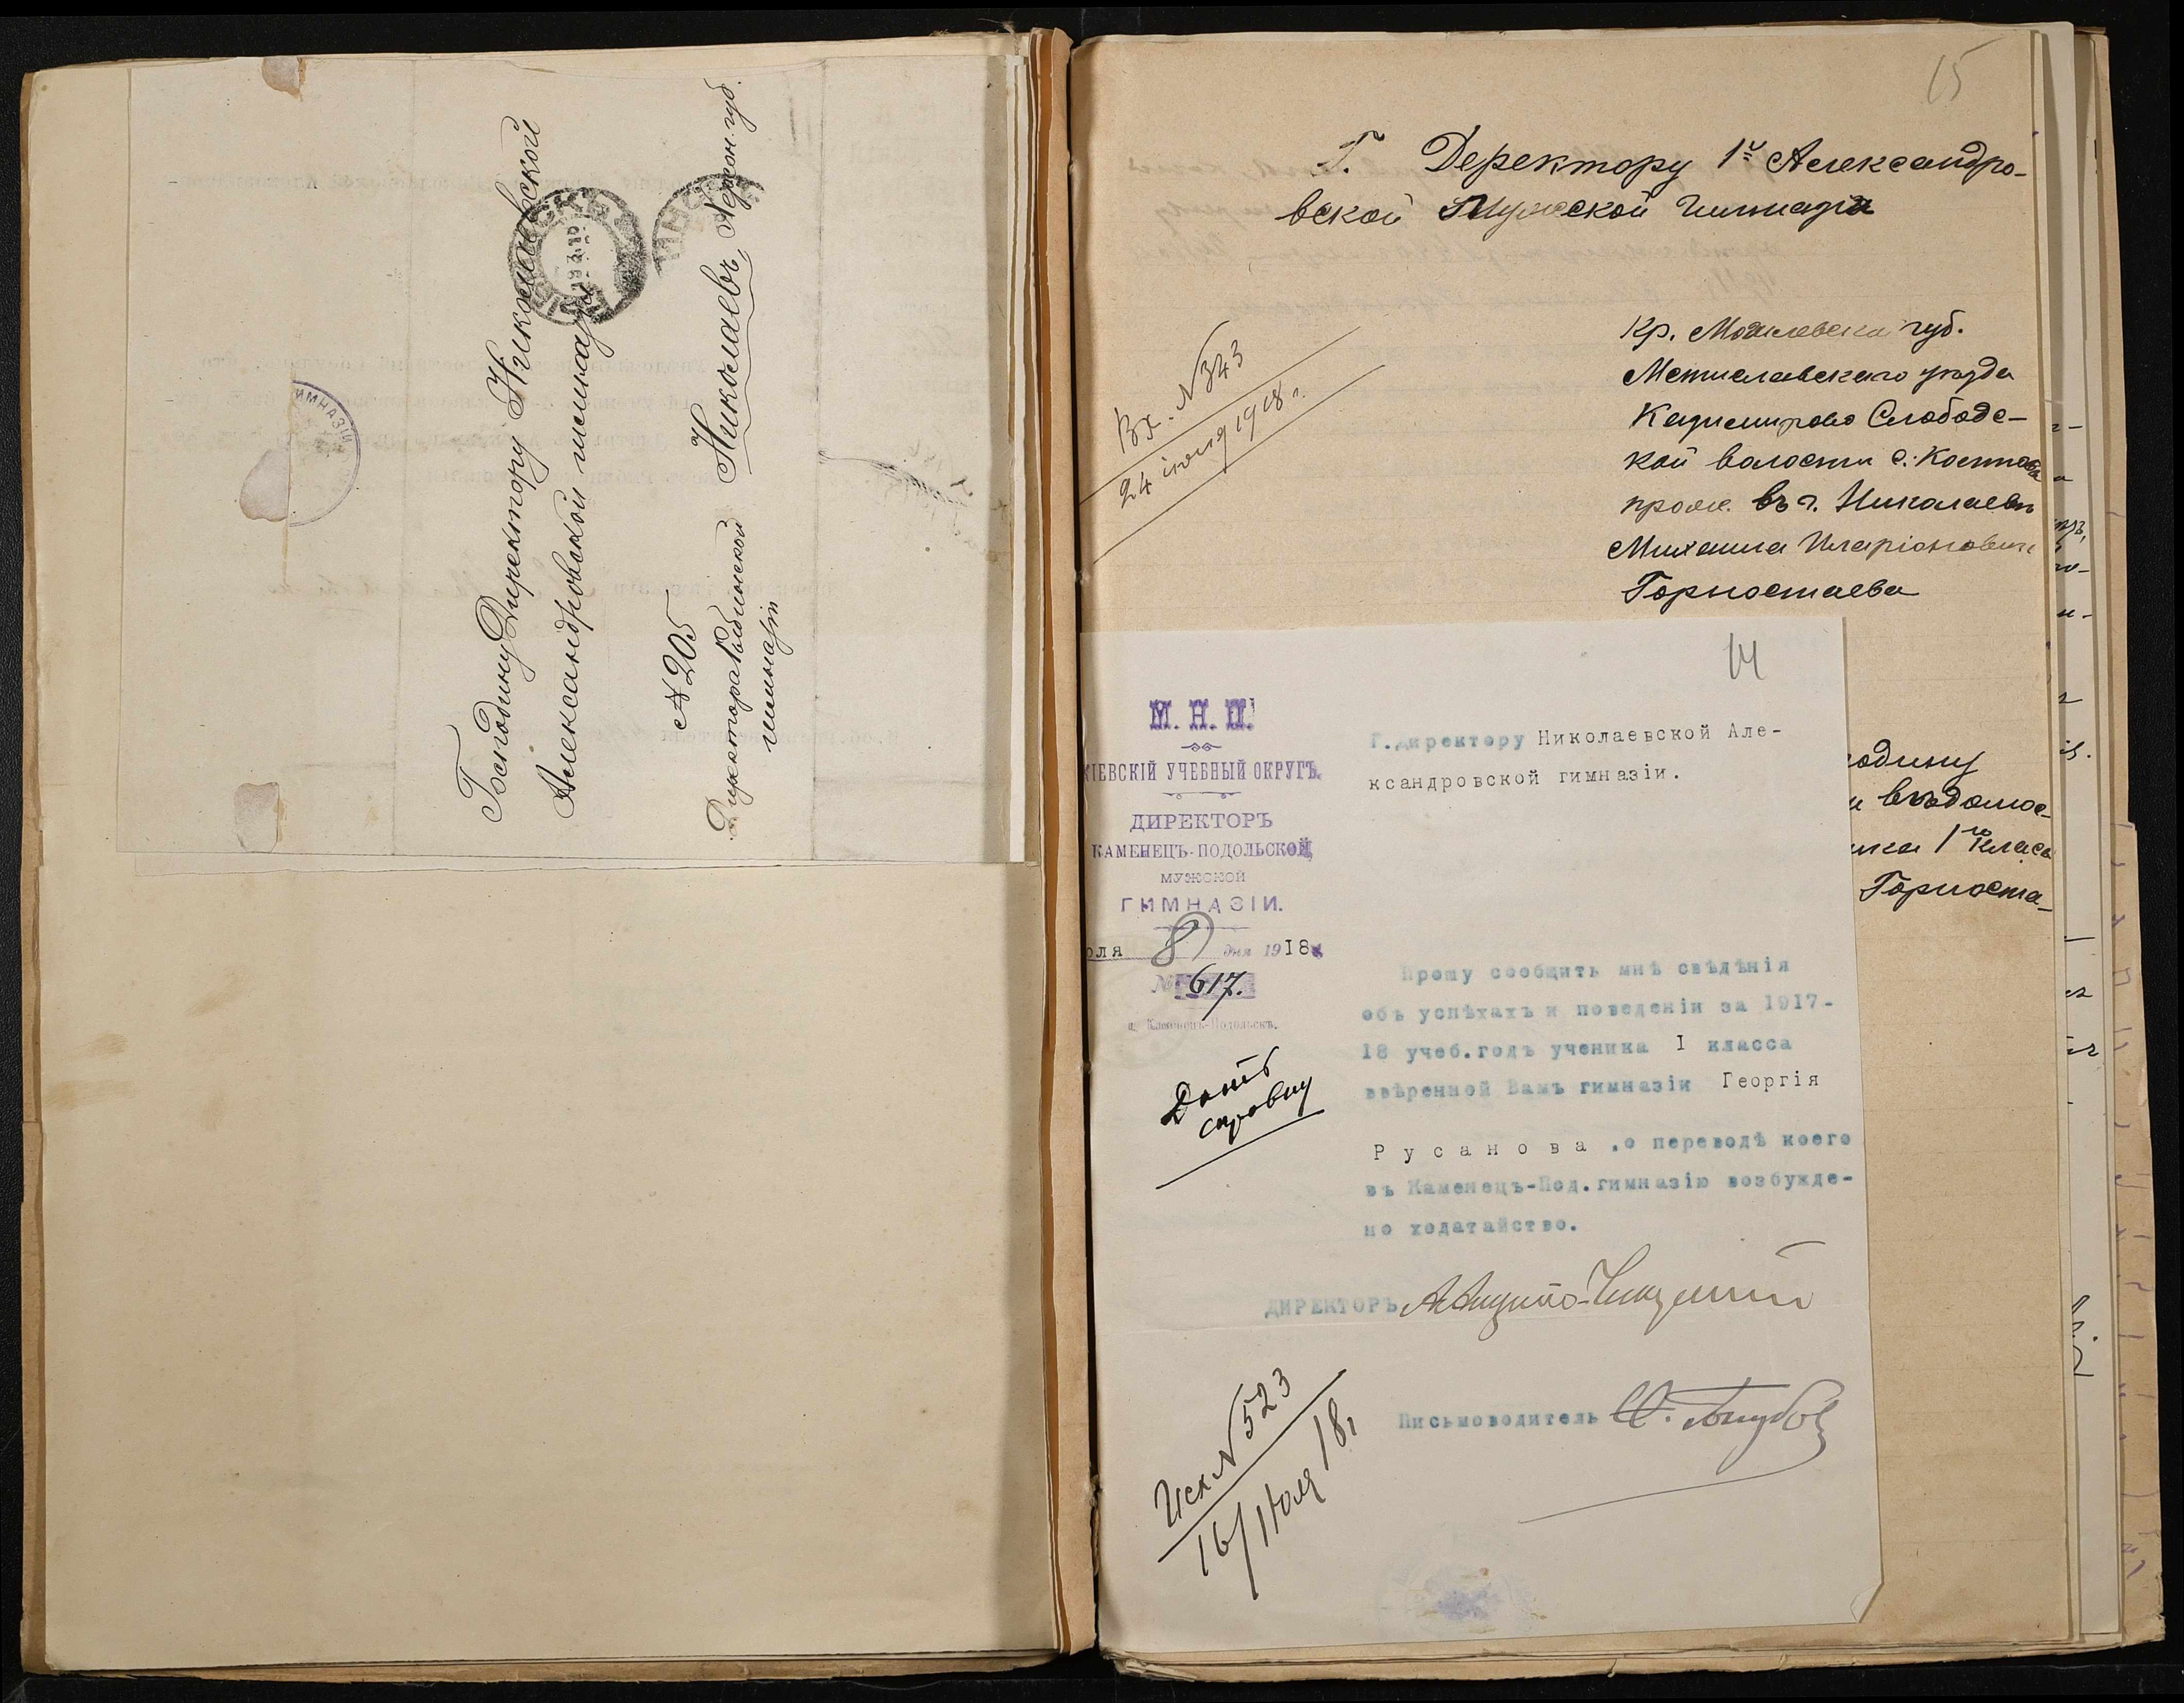 Господину Директору Николаевской
Александровской гимназіи
№ 205
Директора
гимназіи
Николаевъ, Херсон. губ.
ИМНАЗІИ
15
Г. Деректору 1й Александро-
вской Мужской Гимназіи
Вх. N 343
24 іюля 1918 г.
Кр. Могилевской губ.
Мстиславскаго уезда
Казимирово Слободс-
кой волости с.
прож. въ г. Николаевъ
Михаила Иларіоновича
Горностаева
одину
и вѣдомос-
ика 1го класа
Горноста-
14
М. Н. П.
КІЕВСКІЙ УЧЕБНЫЙ ОКРУГЪ.
ДИРЕКТОРЪ
КАМЕНЕЦЪ-ПОДОЛЬСКОЙ
МУЖСКОЙ
ГИМНАЗІИ.
юля 8 дня 1918 г.
№ 617.
г. Каменецъ-Подольскъ.
Г.директору Николаевской Але-
ксандровской гимназіи.
Дать
справку
Прошу сообщить мнѣ свѣдѣнія
объ успѣхахъ и поведеніи за 1917-
18 учеб.годъ ученика I класса
ввѣренной Вамъ гимназіи Георгія
Русанова ,о переводѣ коего
въ Каменецъ-Под.гимназію возбужде-
но ходатайство.
ДИРЕКТОРЪ
Письмоводитель
Исх N 523
16/Іюля 18,